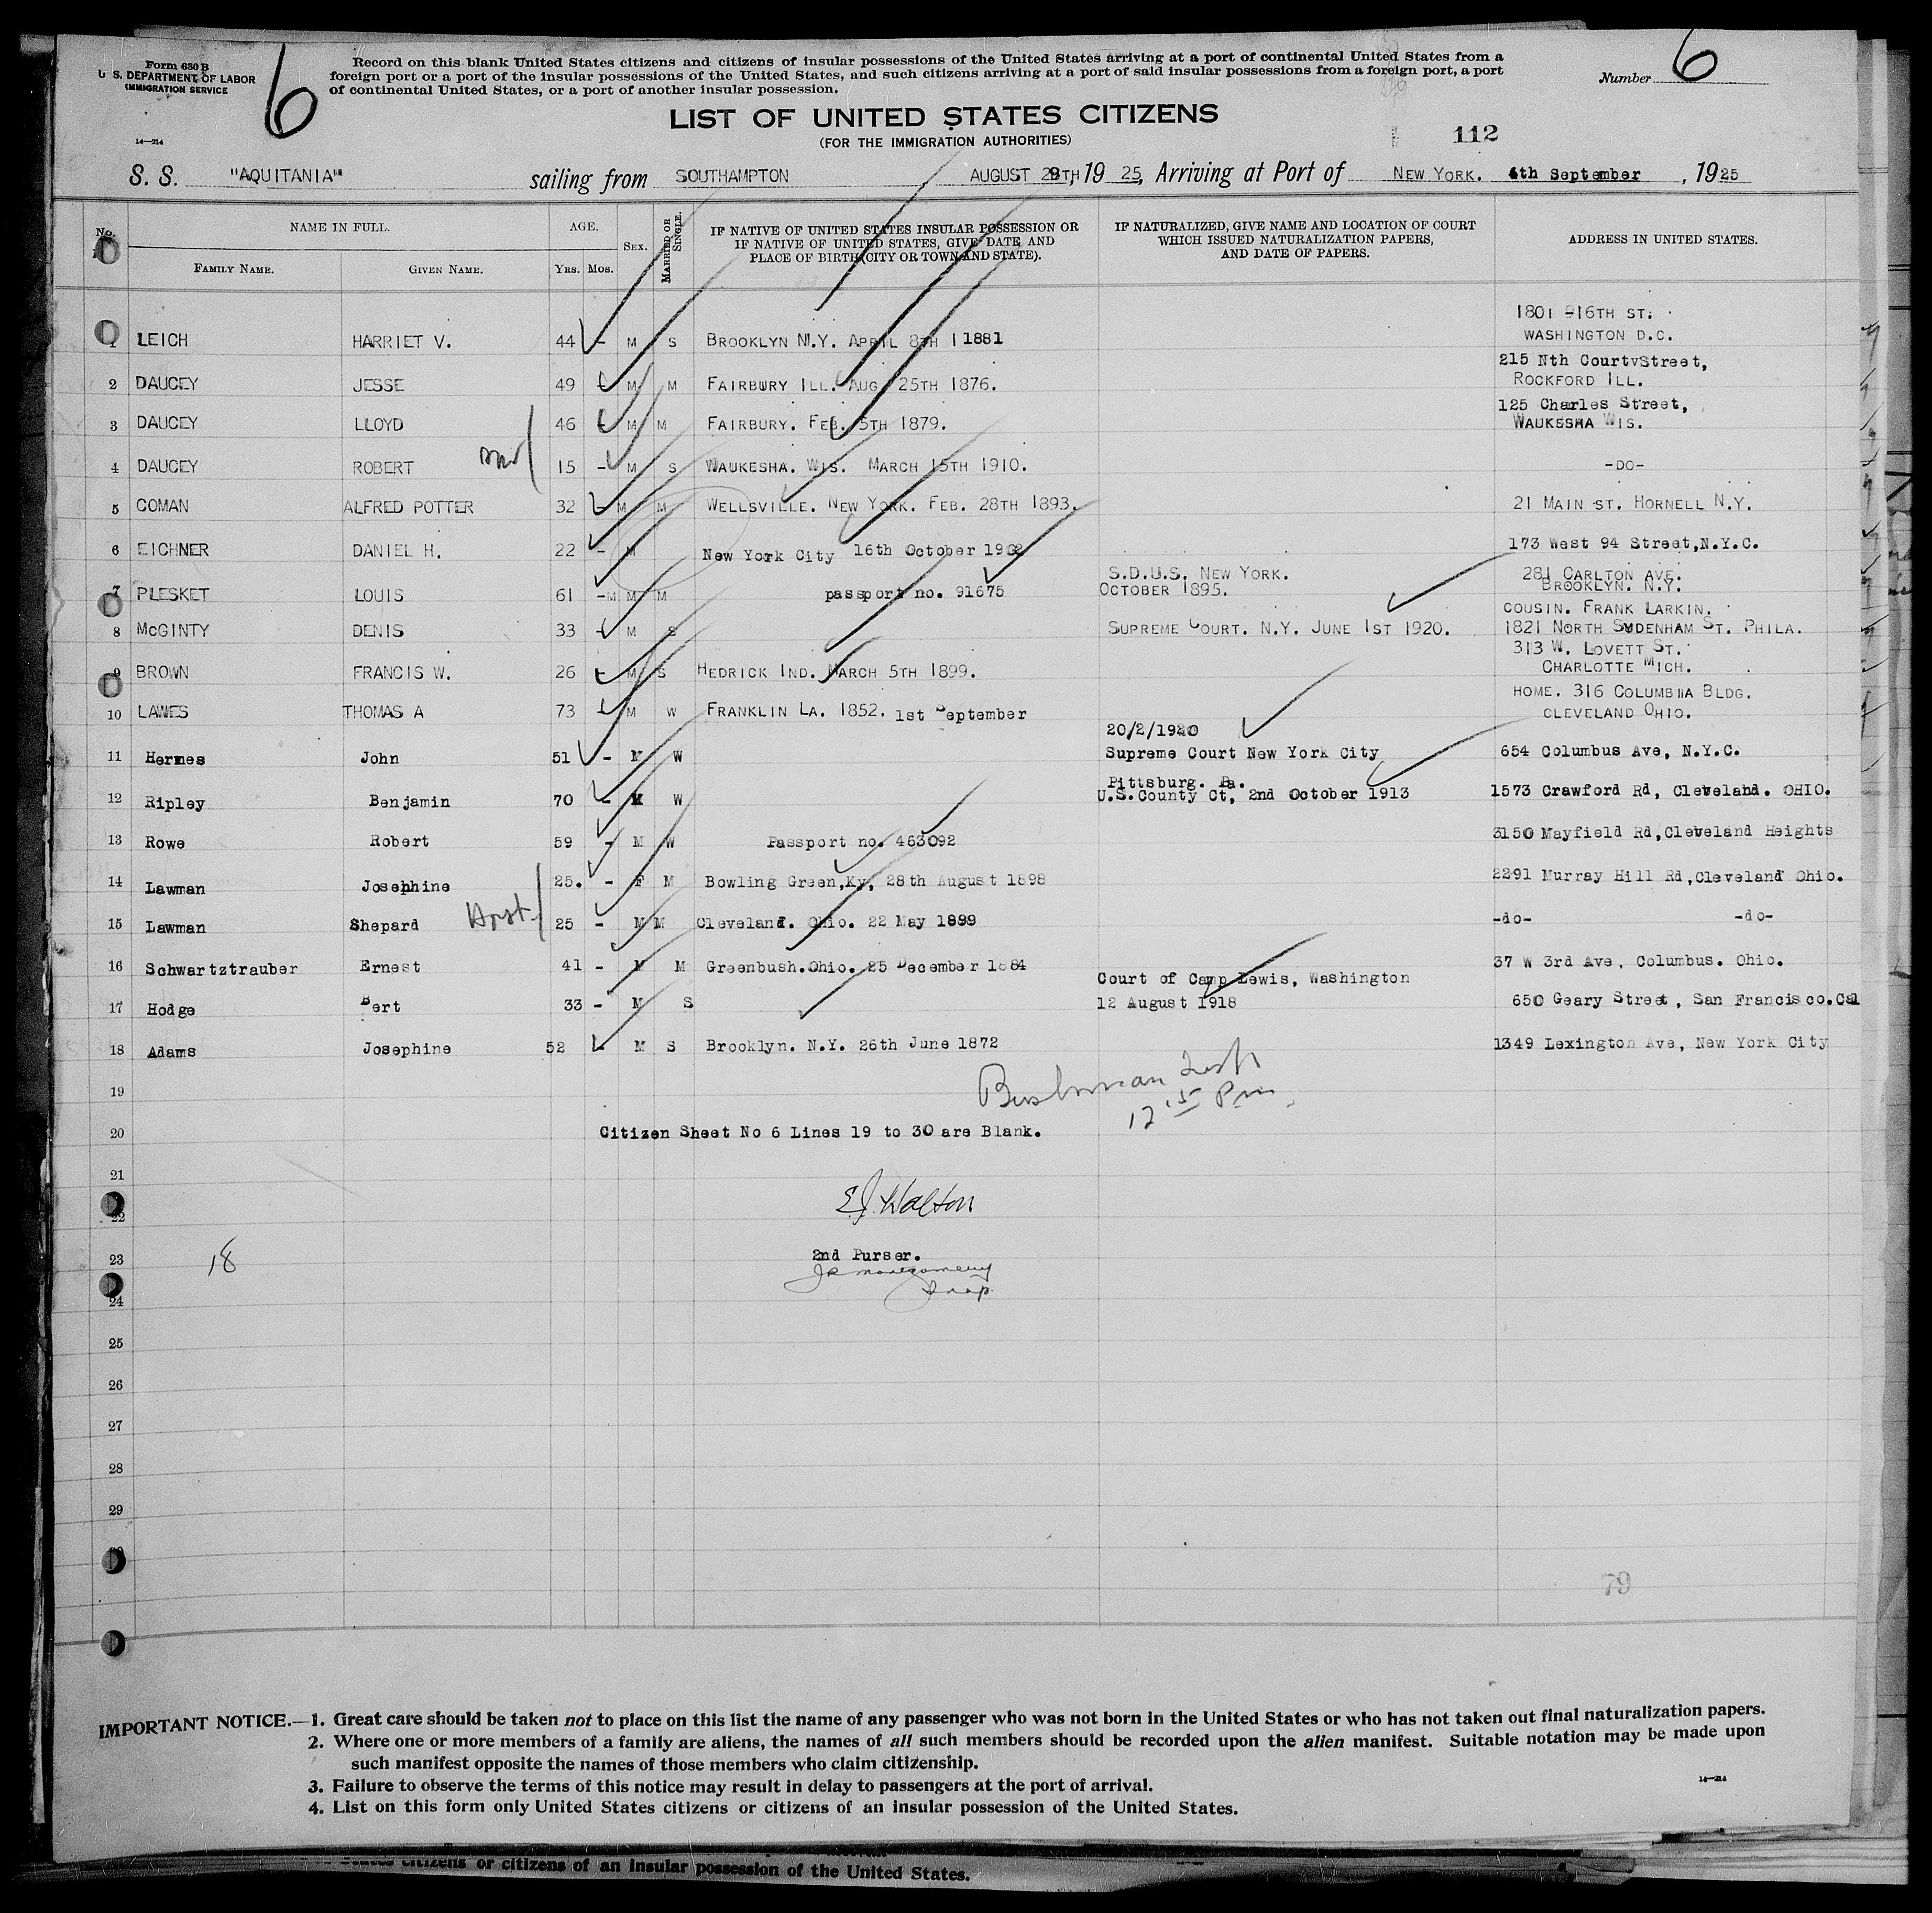 Form 630 B
U. S. DEPARTMENT OF LABOR
IMMIGRATION SERVICE
14—214
6
Record on this blank United States citizens and citizens of insular possessions of the United States arriving at a port of continental United States from a
foreign port or a port of the insular possessions of the United States, and such citizens arriving at a port of said insular possessions from a foreign port, a port
of continental United States, or a port of another insular possession.
Number 6
LIST OF UNITED STATES CITIZENS
(FOR THE IMMIGRATION AUTHORITIES)
112
S. S. "AQUITANIA" sailing from SOUTHAMPTON, AUGUST 29TH, 19 25, Arriving at Port of NEW YORK. 4th September, 1925
No. NAME IN FULL. AGE. SEX. MARRIED OR SINGLE. IF NATIVE OF UNITED STATES INSULAR POSSESSION OR IF NATIVE OF UNITED STATES, GIVE DATE AND PLACE OF BIRTH (CITY OR TOWN AND STATE). IF NATURALIZED, GIVE NAME AND LOCATION OF COURT WHICH ISSUED NATURALIZATION PAPERS, AND DATE OF PAPERS. ADDRESS IN UNITED STATES.
FAMILY NAME. GIVEN NAME. YRS. MOS.
1801 -16TH ST.
1 LEICH HARRIET V. 44 - M S BROOKLYN N.Y. APRIL 8TH 1881 WASHINGTON D.C.
215 Nth CourtvStreet,
2 DAUCEY JESSE 49 - M M FAIRBURY ILL. AUG 25TH 1876. ROCKFORD ILL.
125 Charles Street,
3 DAUCEY LLOYD 46 - M M FAIRBURY. FEB. 5TH 1879. WAUKESHA WIS.
4 DAUCEY ROBERT 15 - M S WAUKESHA. WIS. MARCH 15TH 1910. -DO-
5 COMAN ALFRED POTTER 32 - M M WELLSVILLE. NEW YORK. FEB. 28TH 1893. 21 MAIN ST. HORNELL N.Y.
6 EICHNER DANIEL H. 22 - M New York City 16th October 1902 173 West 94 Street,N.Y.C.
S.D.U.S. NEW YORK. 281 CARLTON AVE.
7 PLESKET LOUIS 61 -M M M passport no. 91675 OCTOBER 1895. BROOKLYN. N.Y.
COUSIN. FRANK LARKIN.
8 McGINTY DENIS 33 - M S SUPREME COURT. N.Y. JUNE 1ST 1920. 1821 NORTH SYDENHAM ST. PHILA.
313 W. LOVETT ST.
9 BROWN FRANCIS W. 26 - M S HEDRICK IND. MARCH 5TH 1899. CHARLOTTE MICH.
HOME. 316 COLUMBIA BLDG.
10 LAWES THOMAS A 73 - M W FRANKLIN LA. 1852. 1st September CLEVELAND OHIO.
20/2/1920
11 Hermes John 51 - M W Supreme Court New York City 654 Columbus Ave, N.Y.C.
Pittsburg. Pa.
12 Ripley Benjamin 70 - M W U.S.County Ct, 2nd October 1913 1573 Crawford Rd, Cleveland. OHIO.
13 Rowe Robert 59 - M W Passport no. 463092 3150 Mayfield Rd,Cleveland Heights
14 Lawman Josephine 25. - F M Bowling Green,Ky, 28th August 1898 2291 Murray Hill Rd,Cleveland Ohio.
15 Lawman Shepard 25 - M M Cleveland. Ohio. 22 May 1899 -do- -do-
16 Schwartztrauber Ernest 41 - M M Greenbush.Ohio. 25 December 1884 37 W 3rd Ave, Columbus. Ohio.
Court of Camp Lewis, Washington
17 Hodge Bert 33 - M S 12 August 1918 650 Geary Street, San Francisco.Cal
18 Adams Josephine 52 - M S Brooklyn. N.Y. 26th June 1872 1349 Lexington Ave, New York City
19
12 15 Pm
20 Citizen Sheet No 6 Lines 19 to 30 are Blank.
21
E.J. Walton
22
23 18 2nd Purser.
J R Montgomery
Insp
24
25
26
27
28
29
30
79
IMPORTANT NOTICE.—1. Great care should be taken not to place on this list the name of any passenger who was not born in the United States or who has not taken out final naturalization papers.
2. Where one or more members of a family are aliens, the names of all such members should be recorded upon the alien manifest. Suitable notation may be made upon
such manifest opposite the names of those members who claim citizenship.
3. Failure to observe the terms of this notice may result in delay to passengers at the port of arrival.
4. List on this form only United States citizens or citizens of an insular possession of the United States.
14—214
States citizens or citizens of an insular possession of the United States.